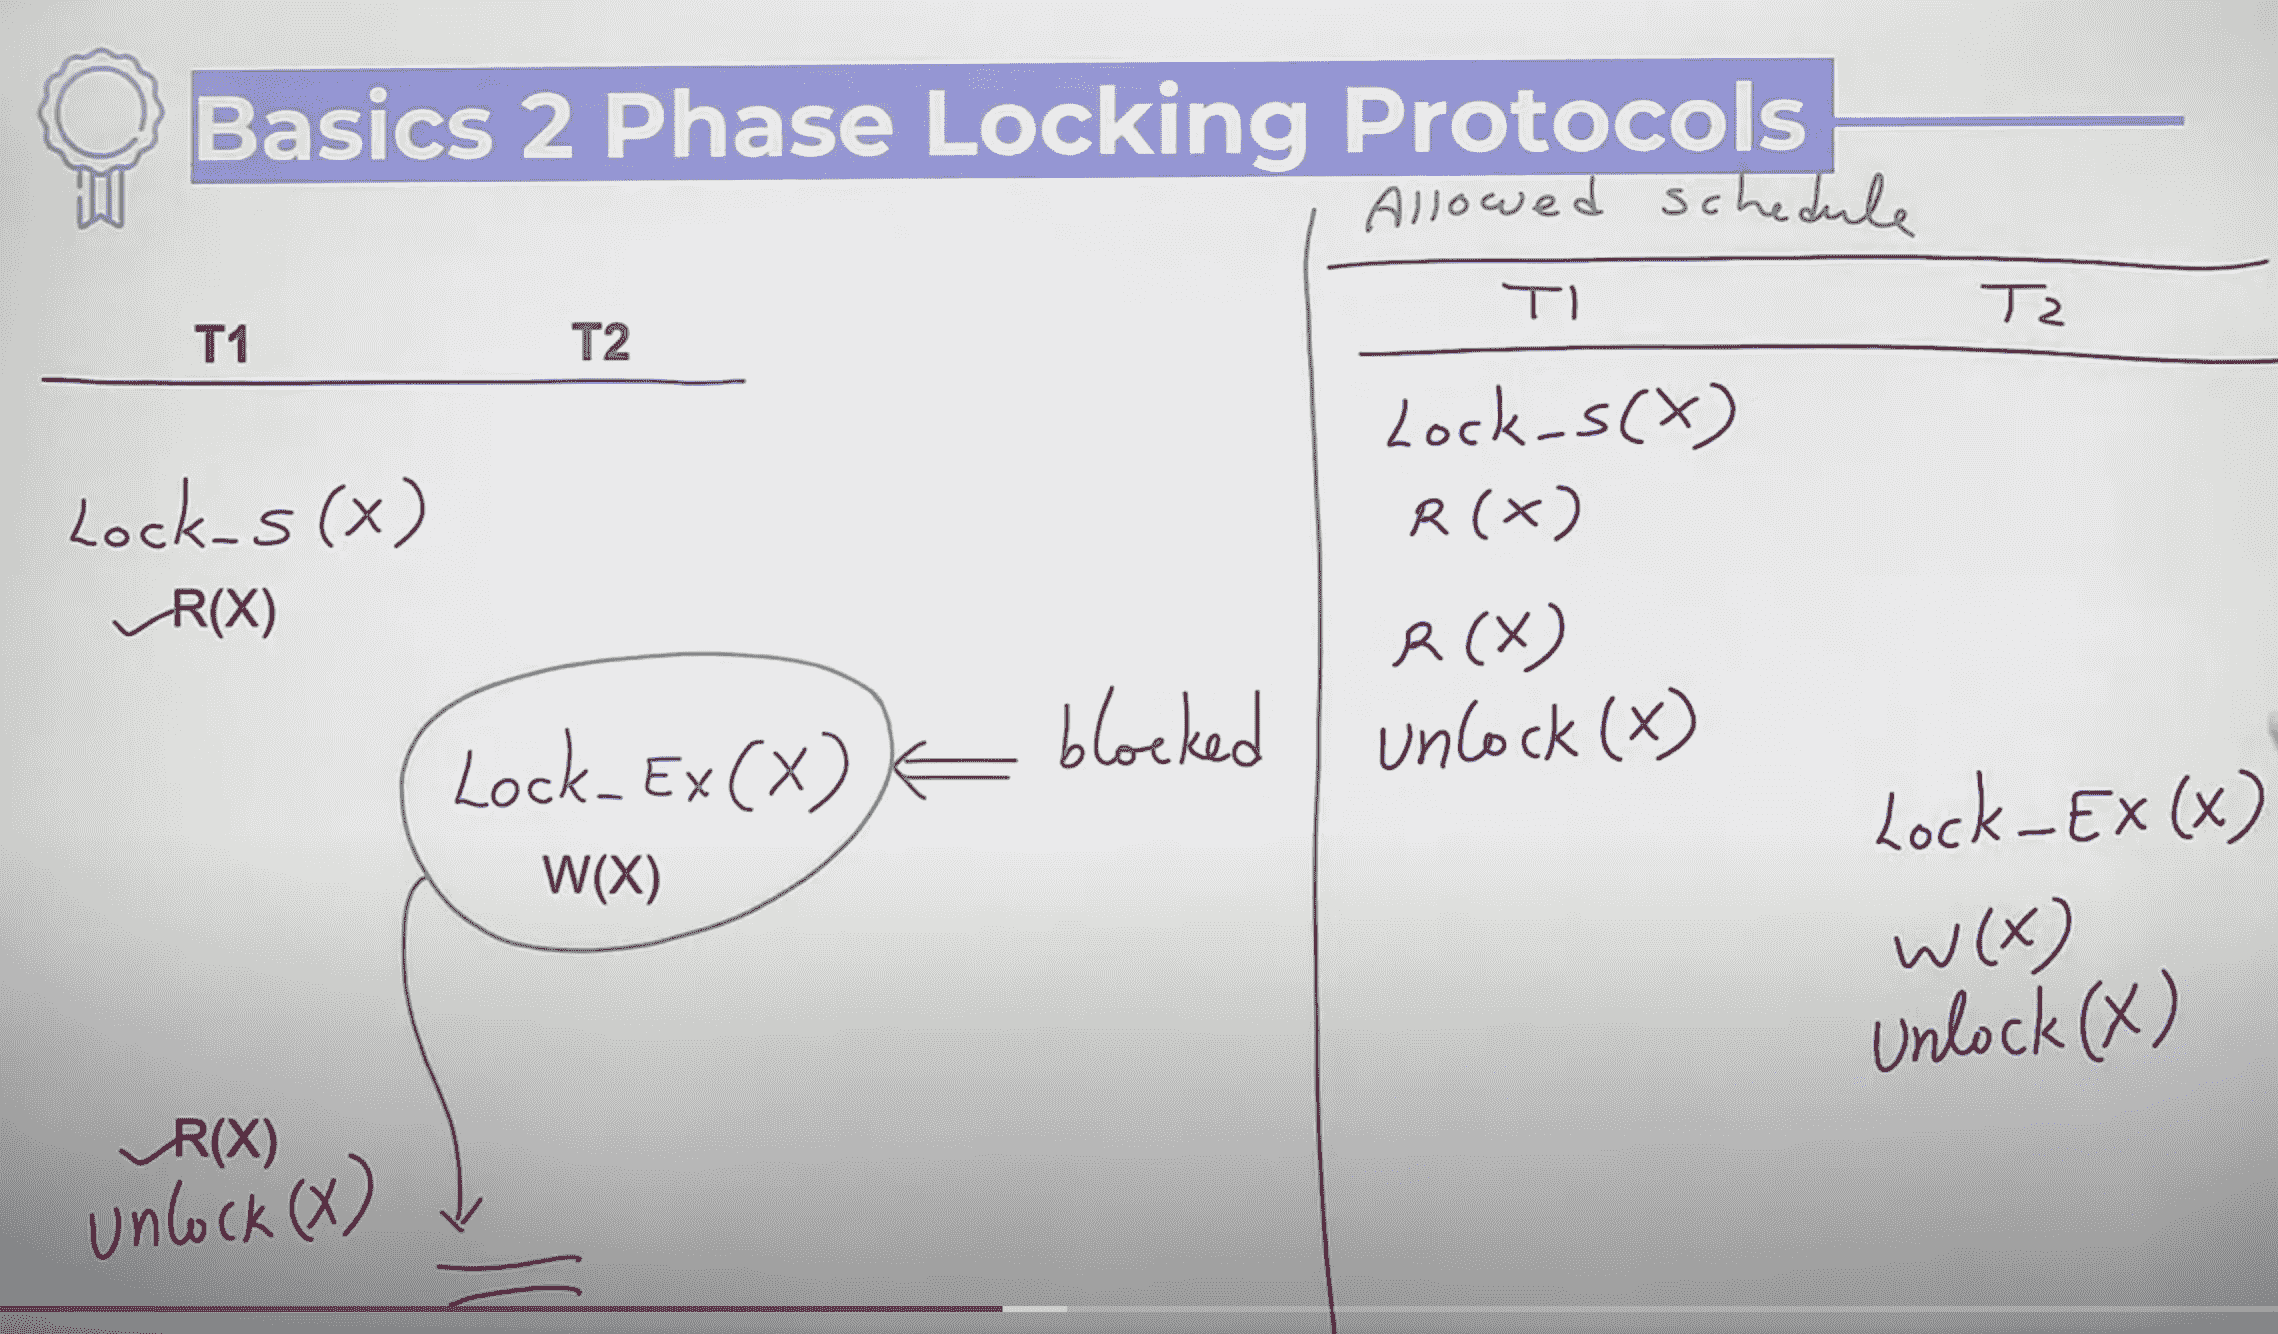 Basics 2 Phase Locking Protocols
T1 T2
Lock_S(X)
R(X)
Lock_Ex(X)
W(X)
blocked
R(X)
Unlock(X)
Allowed schedule
T1 T2
Lock_S(X)
R(X)
R(X)
Unlock(X)
Lock_Ex(X)
W(X)
Unlock(X)